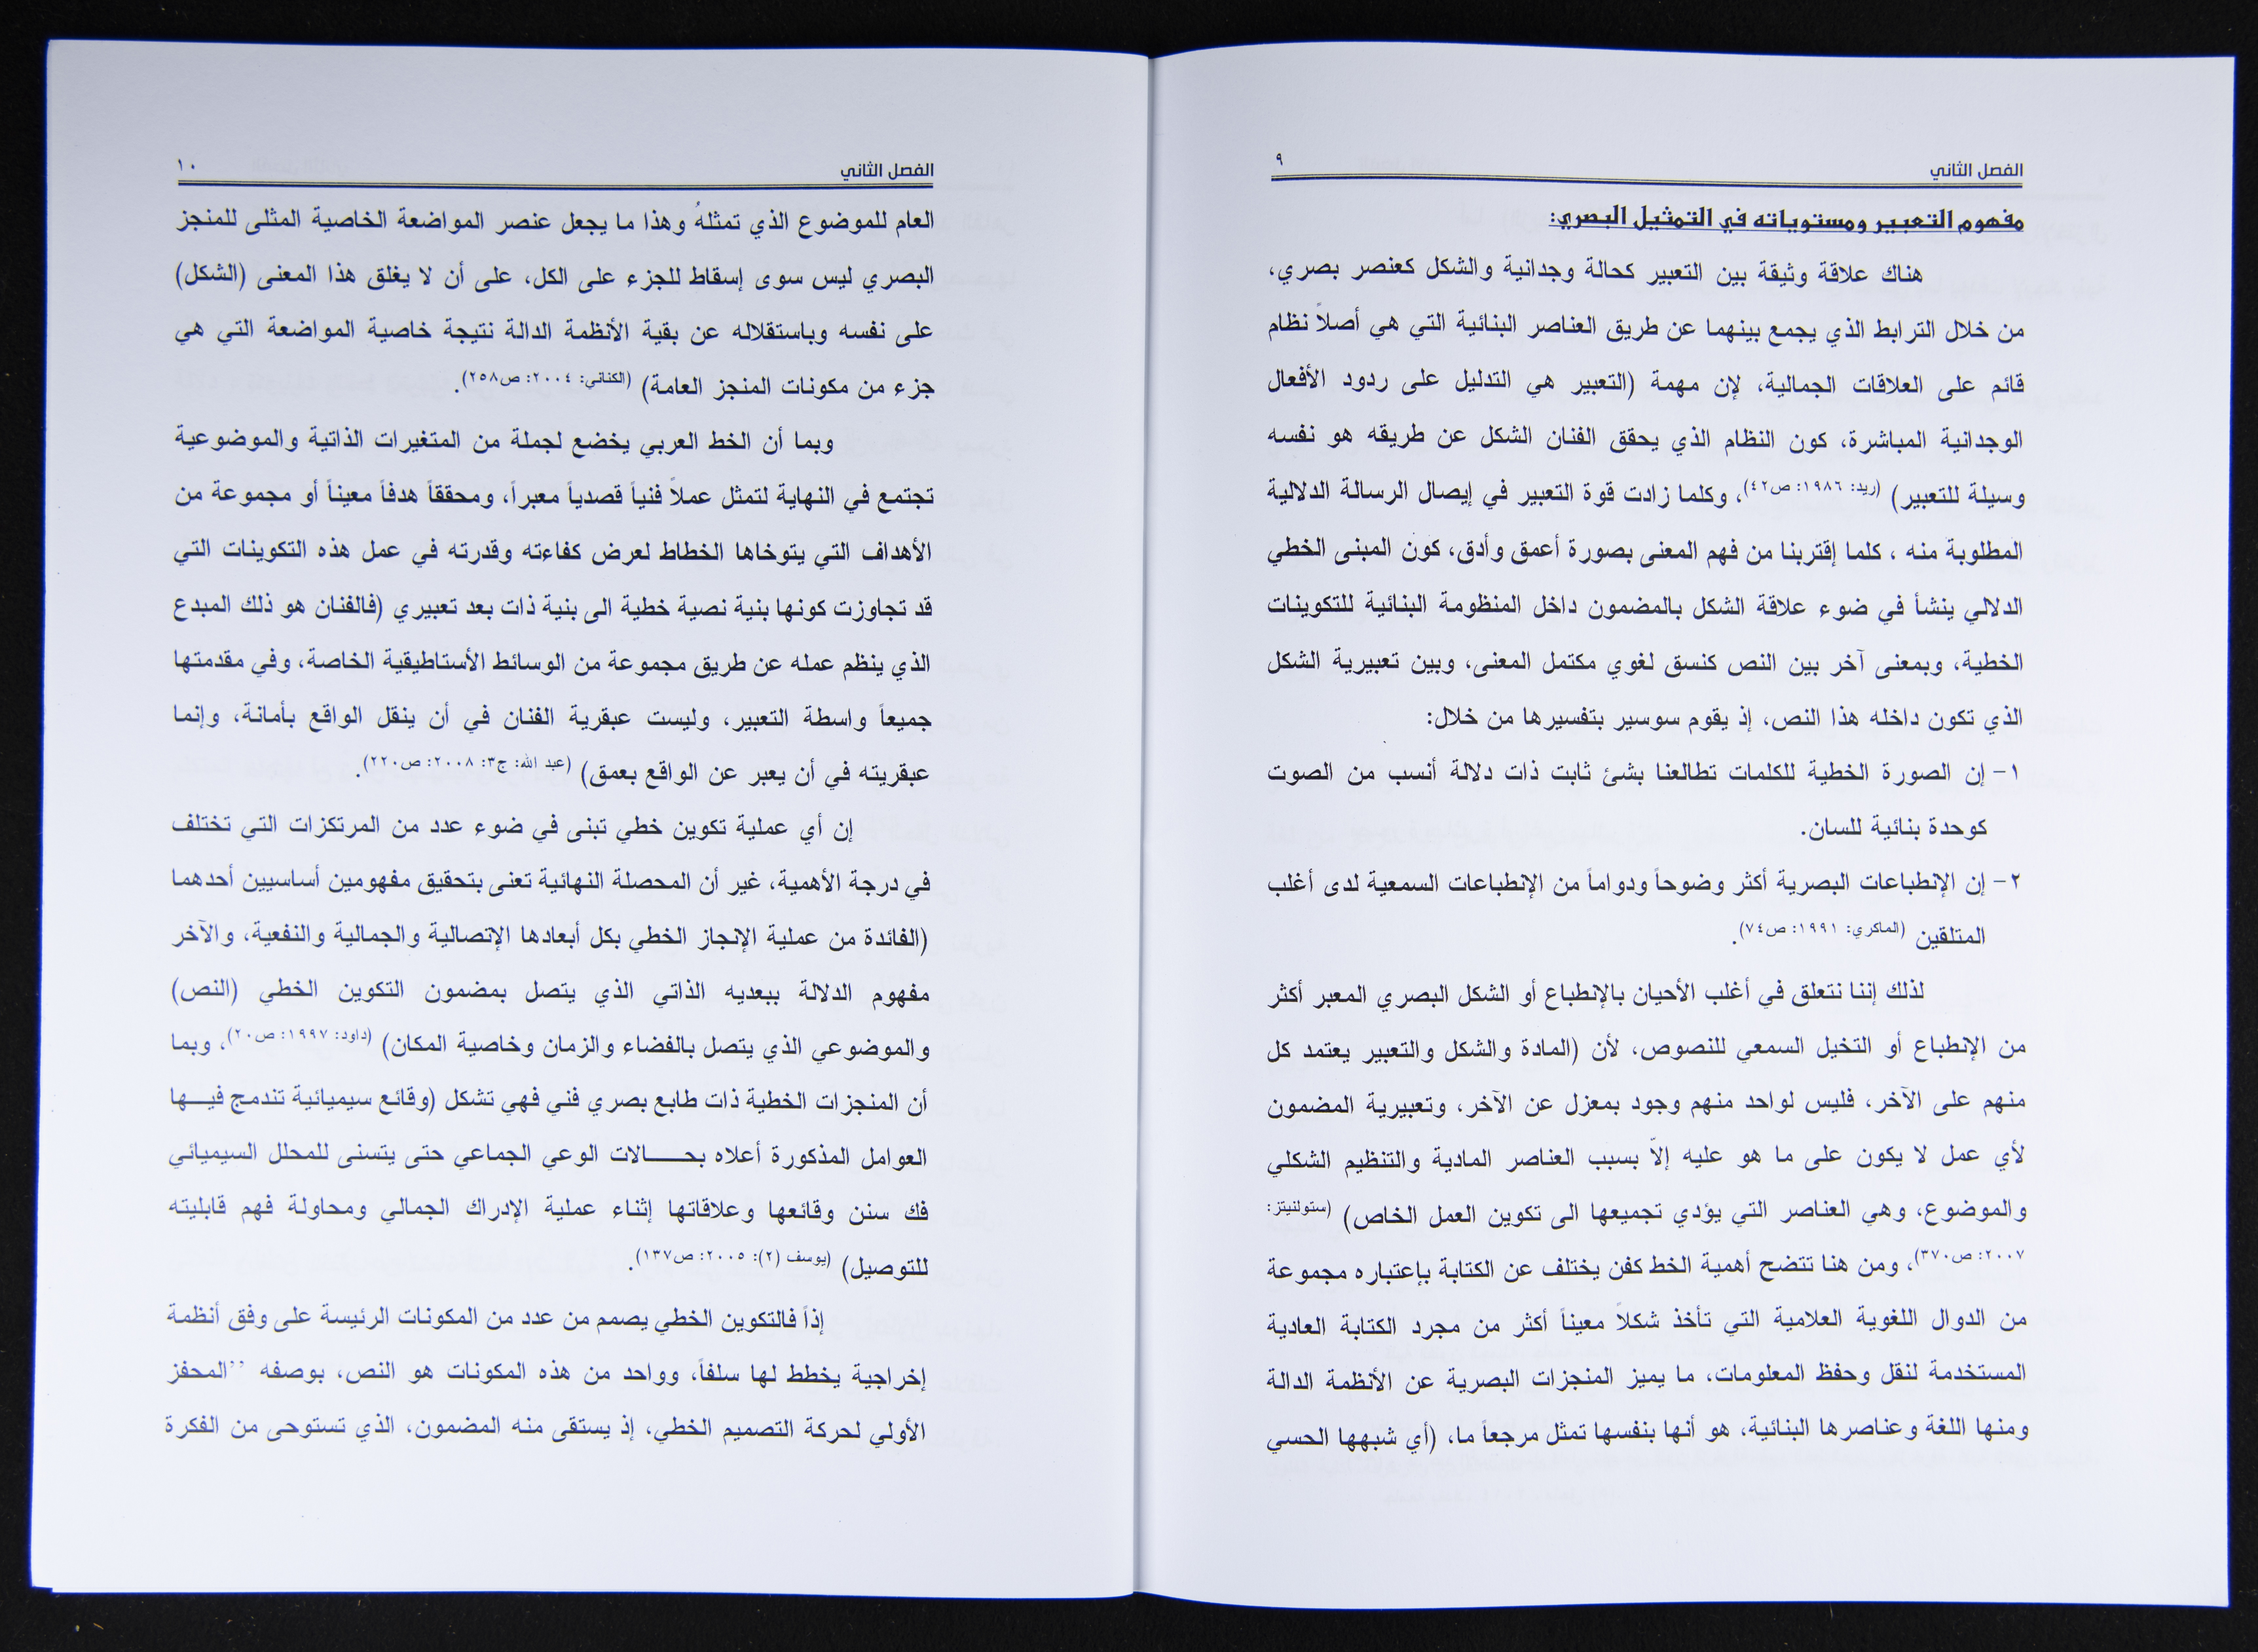 الفصل الثاني ٩
مفهوم التعبير ومستوياته في التمثيل البصري:
هناك علاقة وثيقة بين التعبير كحالة وجدانية والشكل كعنصر بصري،
من خلال الترابط الذي يجمع بينهما عن طريق العناصر البنائية التي هي أصلاً نظام
قائم على العلاقات الجمالية، لإن مهمة (التعبير هي التدليل على ردود الأفعال
الوجدانية المباشرة، كون النظام الذي يحقق الفنان الشكل عن طريقه هو نفسه
وسيلة للتعبير) (ريد: ١٩٨٦: ص٤٢)، وكلما زادت قوة التعبير في إيصال الرسالة الدلالية
المطلوبة منه ، كلما إقتربنا من فهم المعنى بصورة أعمق وأدق، كون المبنى الخطي
الدلالي ينشأ في ضوء علاقة الشكل بالمضمون داخل المنظومة البنائية للتكوينات
الخطية، وبمعنى آخر بين النص كنسق لغوي مكتمل المعنى، وبين تعبيرية الشكل
الذي تكون داخله هذا النص، إذ يقوم سوسير بتفسيرها من خلال:
١- إن الصورة الخطية للكلمات تطالعنا بشئ ثابت ذات دلالة أنسب من الصوت
كوحدة بنائية للسان.
٢- إن الإنطباعات البصرية أكثر وضوحاً ودواماً من الإنطباعات السمعية لدى أغلب
المتلقين (الماكري: ١٩٩١: ص٧٤).
لذلك إننا نتعلق في أغلب الأحيان بالإنطباع أو الشكل البصري المعبر أكثر
من الإنطباع أو التخيل السمعي للنصوص، لأن (المادة والشكل والتعبير يعتمد كل
منهم على الآخر، فليس لواحد منهم وجود بمعزل عن الآخر، وتعبيرية المضمون
لأي عمل لا يكون على ما هو عليه إلاّ بسبب العناصر المادية والتنظيم الشكلي
والموضوع، وهي العناصر التي يؤدي تجميعها الى تكوين العمل الخاص) (ستولنيتز:
٢٠٠٧: ص٣٧٠)، ومن هنا تتضح أهمية الخط كفن يختلف عن الكتابة بإعتباره مجموعة
من الدوال اللغوية العلامية التي تأخذ شكلاً معيناً أكثر من مجرد الكتابة العادية
المستخدمة لنقل وحفظ المعلومات، ما يميز المنجزات البصرية عن الأنظمة الدالة
ومنها اللغة وعناصرها البنائية، هو أنها بنفسها تمثل مرجعاً ما، (أي شبهها الحسي
الفصل الثاني ١٠
العام للموضوع الذي تمثلهُ وهذا ما يجعل عنصر المواضعة الخاصية المثلى للمنجز
البصري ليس سوى إسقاط للجزء على الكل، على أن لا يغلق هذا المعنى (الشكل)
على نفسه وباستقلاله عن بقية الأنظمة الدالة نتيجة خاصية المواضعة التي هي
جزء من مكونات المنجز العامة) (الكناني: ٢٠٠٤: ص٢٥٨).
وبما أن الخط العربي يخضع لجملة من المتغيرات الذاتية والموضوعية
تجتمع في النهاية لتمثل عملاً فنياً قصدياً معبراً، ومحققاً هدفاً معيناً أو مجموعة من
الأهداف التي يتوخاها الخطاط لعرض كفاءته وقدرته في عمل هذه التكوينات التي
قد تجاوزت كونها بنية نصية خطية الى بنية ذات بعد تعبيري (فالفنان هو ذلك المبدع
الذي ينظم عمله عن طريق مجموعة من الوسائط الأستاطيقية الخاصة، وفي مقدمتها
جميعاً واسطة التعبير، وليست عبقرية الفنان في أن ينقل الواقع بأمانة، وإنما
عبقريته في أن يعبر عن الواقع بعمق) (عبد الله: ج٣: ٢٠٠٨: ص٢٢٠).
إن أي عملية تكوين خطي تبنى في ضوء عدد من المرتكزات التي تختلف
في درجة الأهمية، غير أن المحصلة النهائية تعنى بتحقيق مفهومين أساسيين أحدهما
(الفائدة من عملية الإنجاز الخطي بكل أبعادها الإتصالية والجمالية والنفعية، والآخر
مفهوم الدلالة ببعديه الذاتي الذي يتصل بمضمون التكوين الخطي (النص)
والموضوعي الذي يتصل بالفضاء والزمان وخاصية المكان) (داود: ١٩٩٧: ص٢٠)، وبما
أن المنجزات الخطية ذات طابع بصري فني فهي تشكل (وقائع سيميائية تندمج فيـــها
العوامل المذكورة أعلاه بحـــــالات الوعي الجماعي حتى يتسنى للمحلل السيميائي
فك سنن وقائعها وعلاقاتها إثناء عملية الإدراك الجمالي ومحاولة فهم قابليته
للتوصيل) (يوسف (٢): ٢٠٠٥: ص١٣٧).
إذاً فالتكوين الخطي يصمم من عدد من المكونات الرئيسة على وفق أنظمة
إخراجية يخطط لها سلفاً، وواحد من هذه المكونات هو النص، بوصفه ”المحفز
الأولي لحركة التصميم الخطي، إذ يستقى منه المضمون، الذي تستوحى من الفكرة